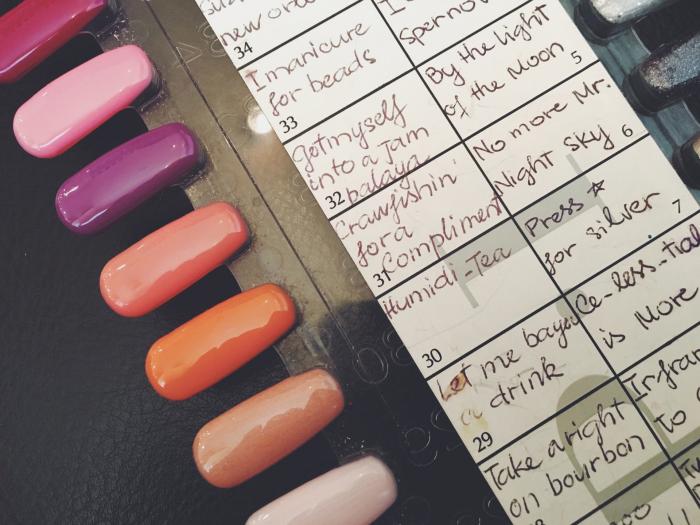 new or
34
I manicure
for beads
33
Gotmyself
into a Jam
balaya
32
Crawfishin'
for a
Compliment
31
Humidi-Tea
30
Let me bayou
a drink
29
Take a right
on bourbon
By the light
of the Moon
5
No more Mr.
Night Sky
6
Press ☆
for silver
7
Ce-less-tial
is More
to